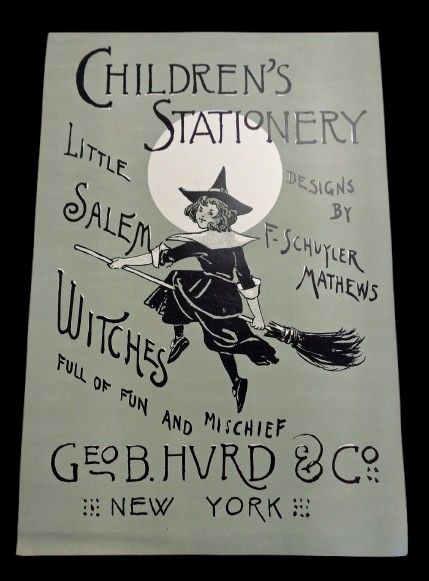 CHILDREN'S
STATIONERY
LITTLE
SALEM
WITCHES
FULL OF FUN AND MISCHIEF
DESIGNS
BY
F. SCHUYLER
MATHEWS
GEO B. HURD & CO
NEW YORK